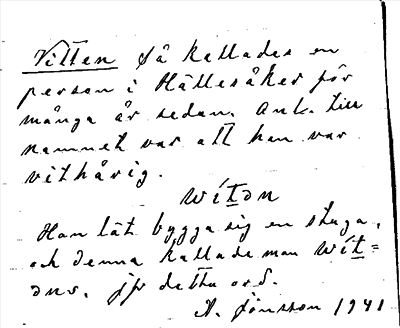 Vitten så kallades en
person i Hällesåker för
många år sedan. Anl. till
namnet var att han var
vithårig.
wítən
Han lät bygga sig en stuga,
och denna kallade man wít=
əns. jfr detta ord.
A. Jönsson 1941